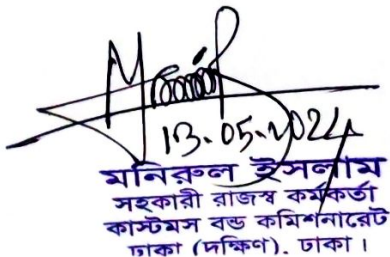 13.05.2024
মনিরুল ইসলাম
সহকারী রাজস্ব কর্মকর্তা
কাস্টমস বন্ড কমিশনারেট
ঢাকা (দক্ষিণ). ঢাকা।